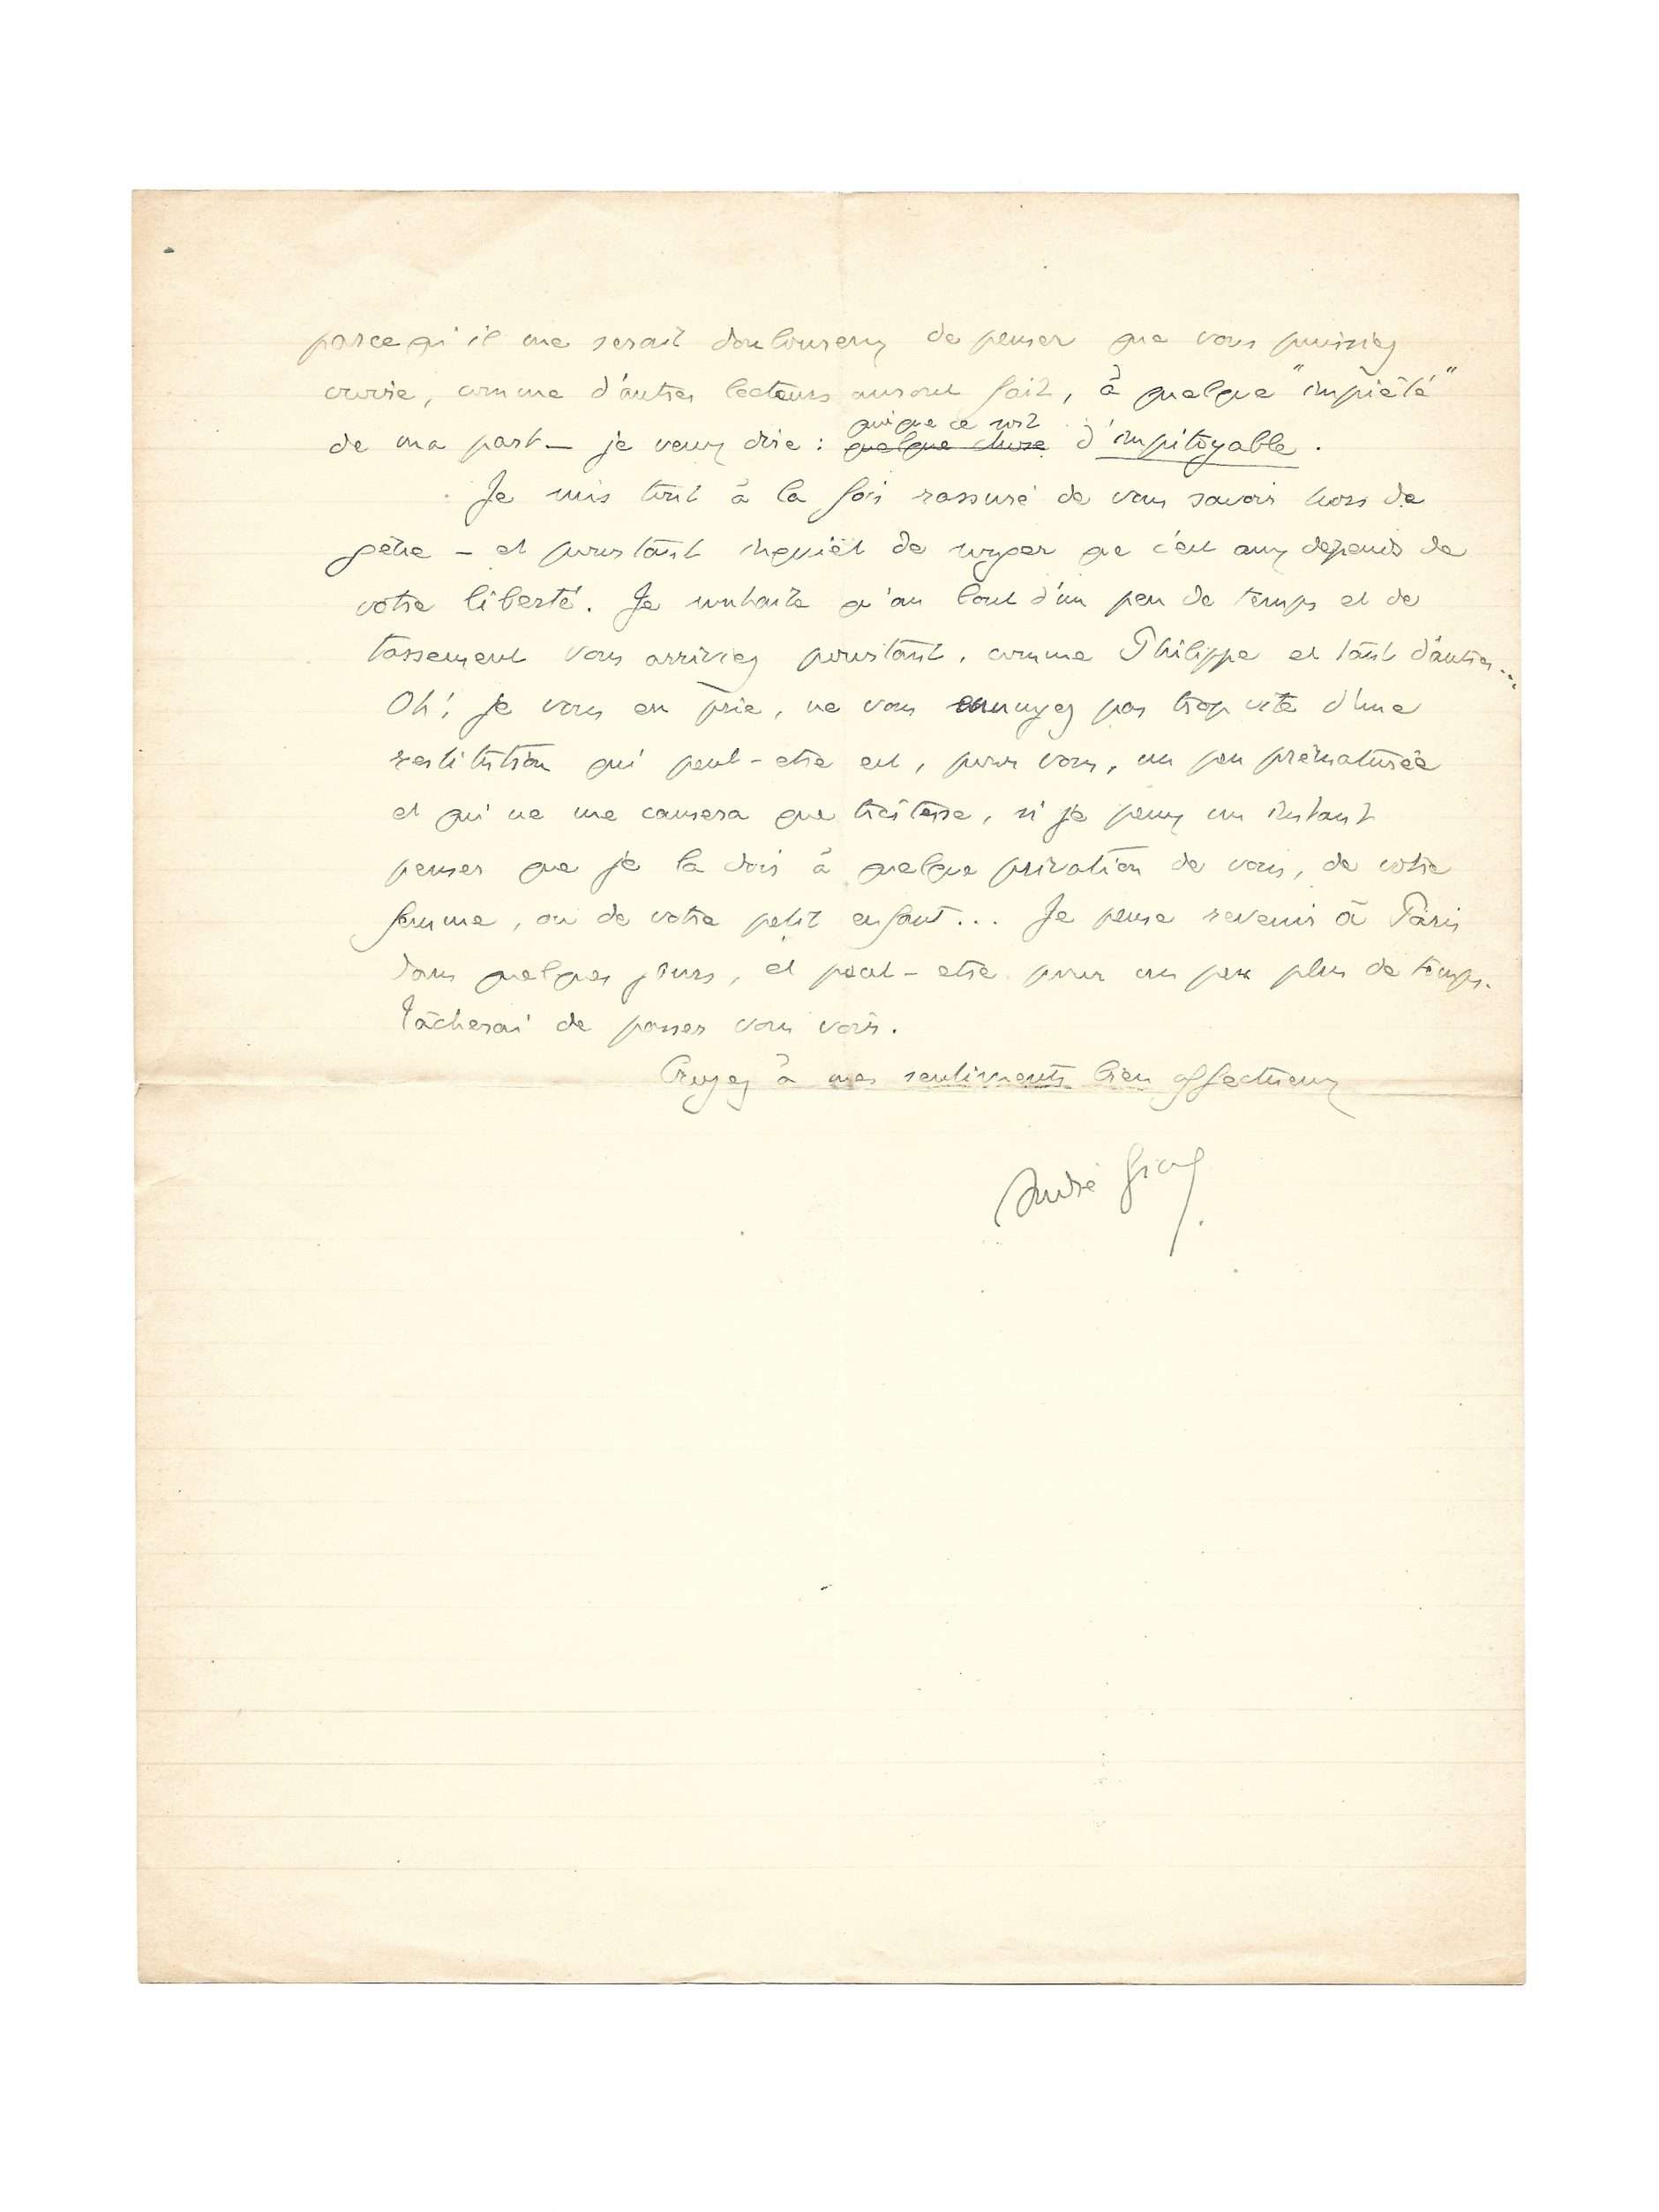 parce qu'il me serait douloureux de penser que vous puissiez
croire, comme d'autres lecteurs auront fait, à quelque "impiété"
quoi que ce soit
de ma part — je veux dire : quelque chose d'impitoyable.
Je suis tout à la fois rassuré de vous savoir hors de
gêne — et pourtant inquiet de songer que c'est aux dépends de
votre liberté. Je souhaite qu'au bout d'un peu de temps et de
tassement vous arriviez pourtant, comme Philippe et tant d'autres...
Oh! je vous en prie, ne vous ennuyez pas trop vite d'une
restitution qui peut-etre est, pour vous, un peu prématurée
et qui ne me causera que tristesse, si je peux un instant
penser que je la dois à quelque privation de vous, de votre
femme, ou de votre petit enfant... Je pense revenir à Paris
dans quelques jours, et peut-etre pour un peu plus de temps.
Tâcherai de passer vous voir.
Croyez à mes sentiments bien affectueux
André Gide